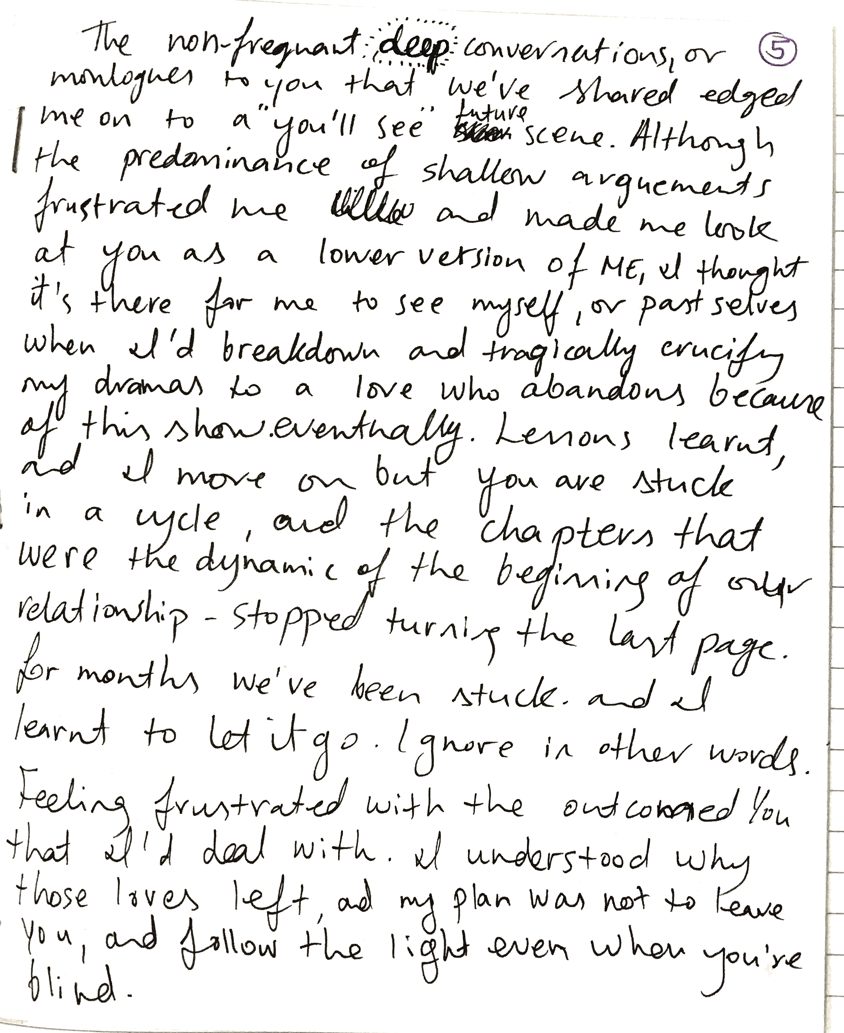 The non-frequant deep conversations, or ⑤
monlogues to you that we've shared edged
me on to a "you'll see" future scene. Although
the predominance of shallow arguements
frustrated me and made me look
at you as a lower version of ME, I thought
it's there for me to see myself, or past selves
when I'd breakdown and tragically crucify
my dramas to a love who abandons because
of this show. eventhally. Lessons learnt,
and I move on but you are stuck
in a cycle, and the chapters that
were the dynamic of the begining of our
relationship - stopped turning the last page.
for months we've been stuck. and I
learnt to let it go. Ignore in other words.
Feeling frustrated with the outcomed You
that I'd deal with. I understood why
those loves left, ad my plan was not to leave
you, and follow the light even when you're
blind.